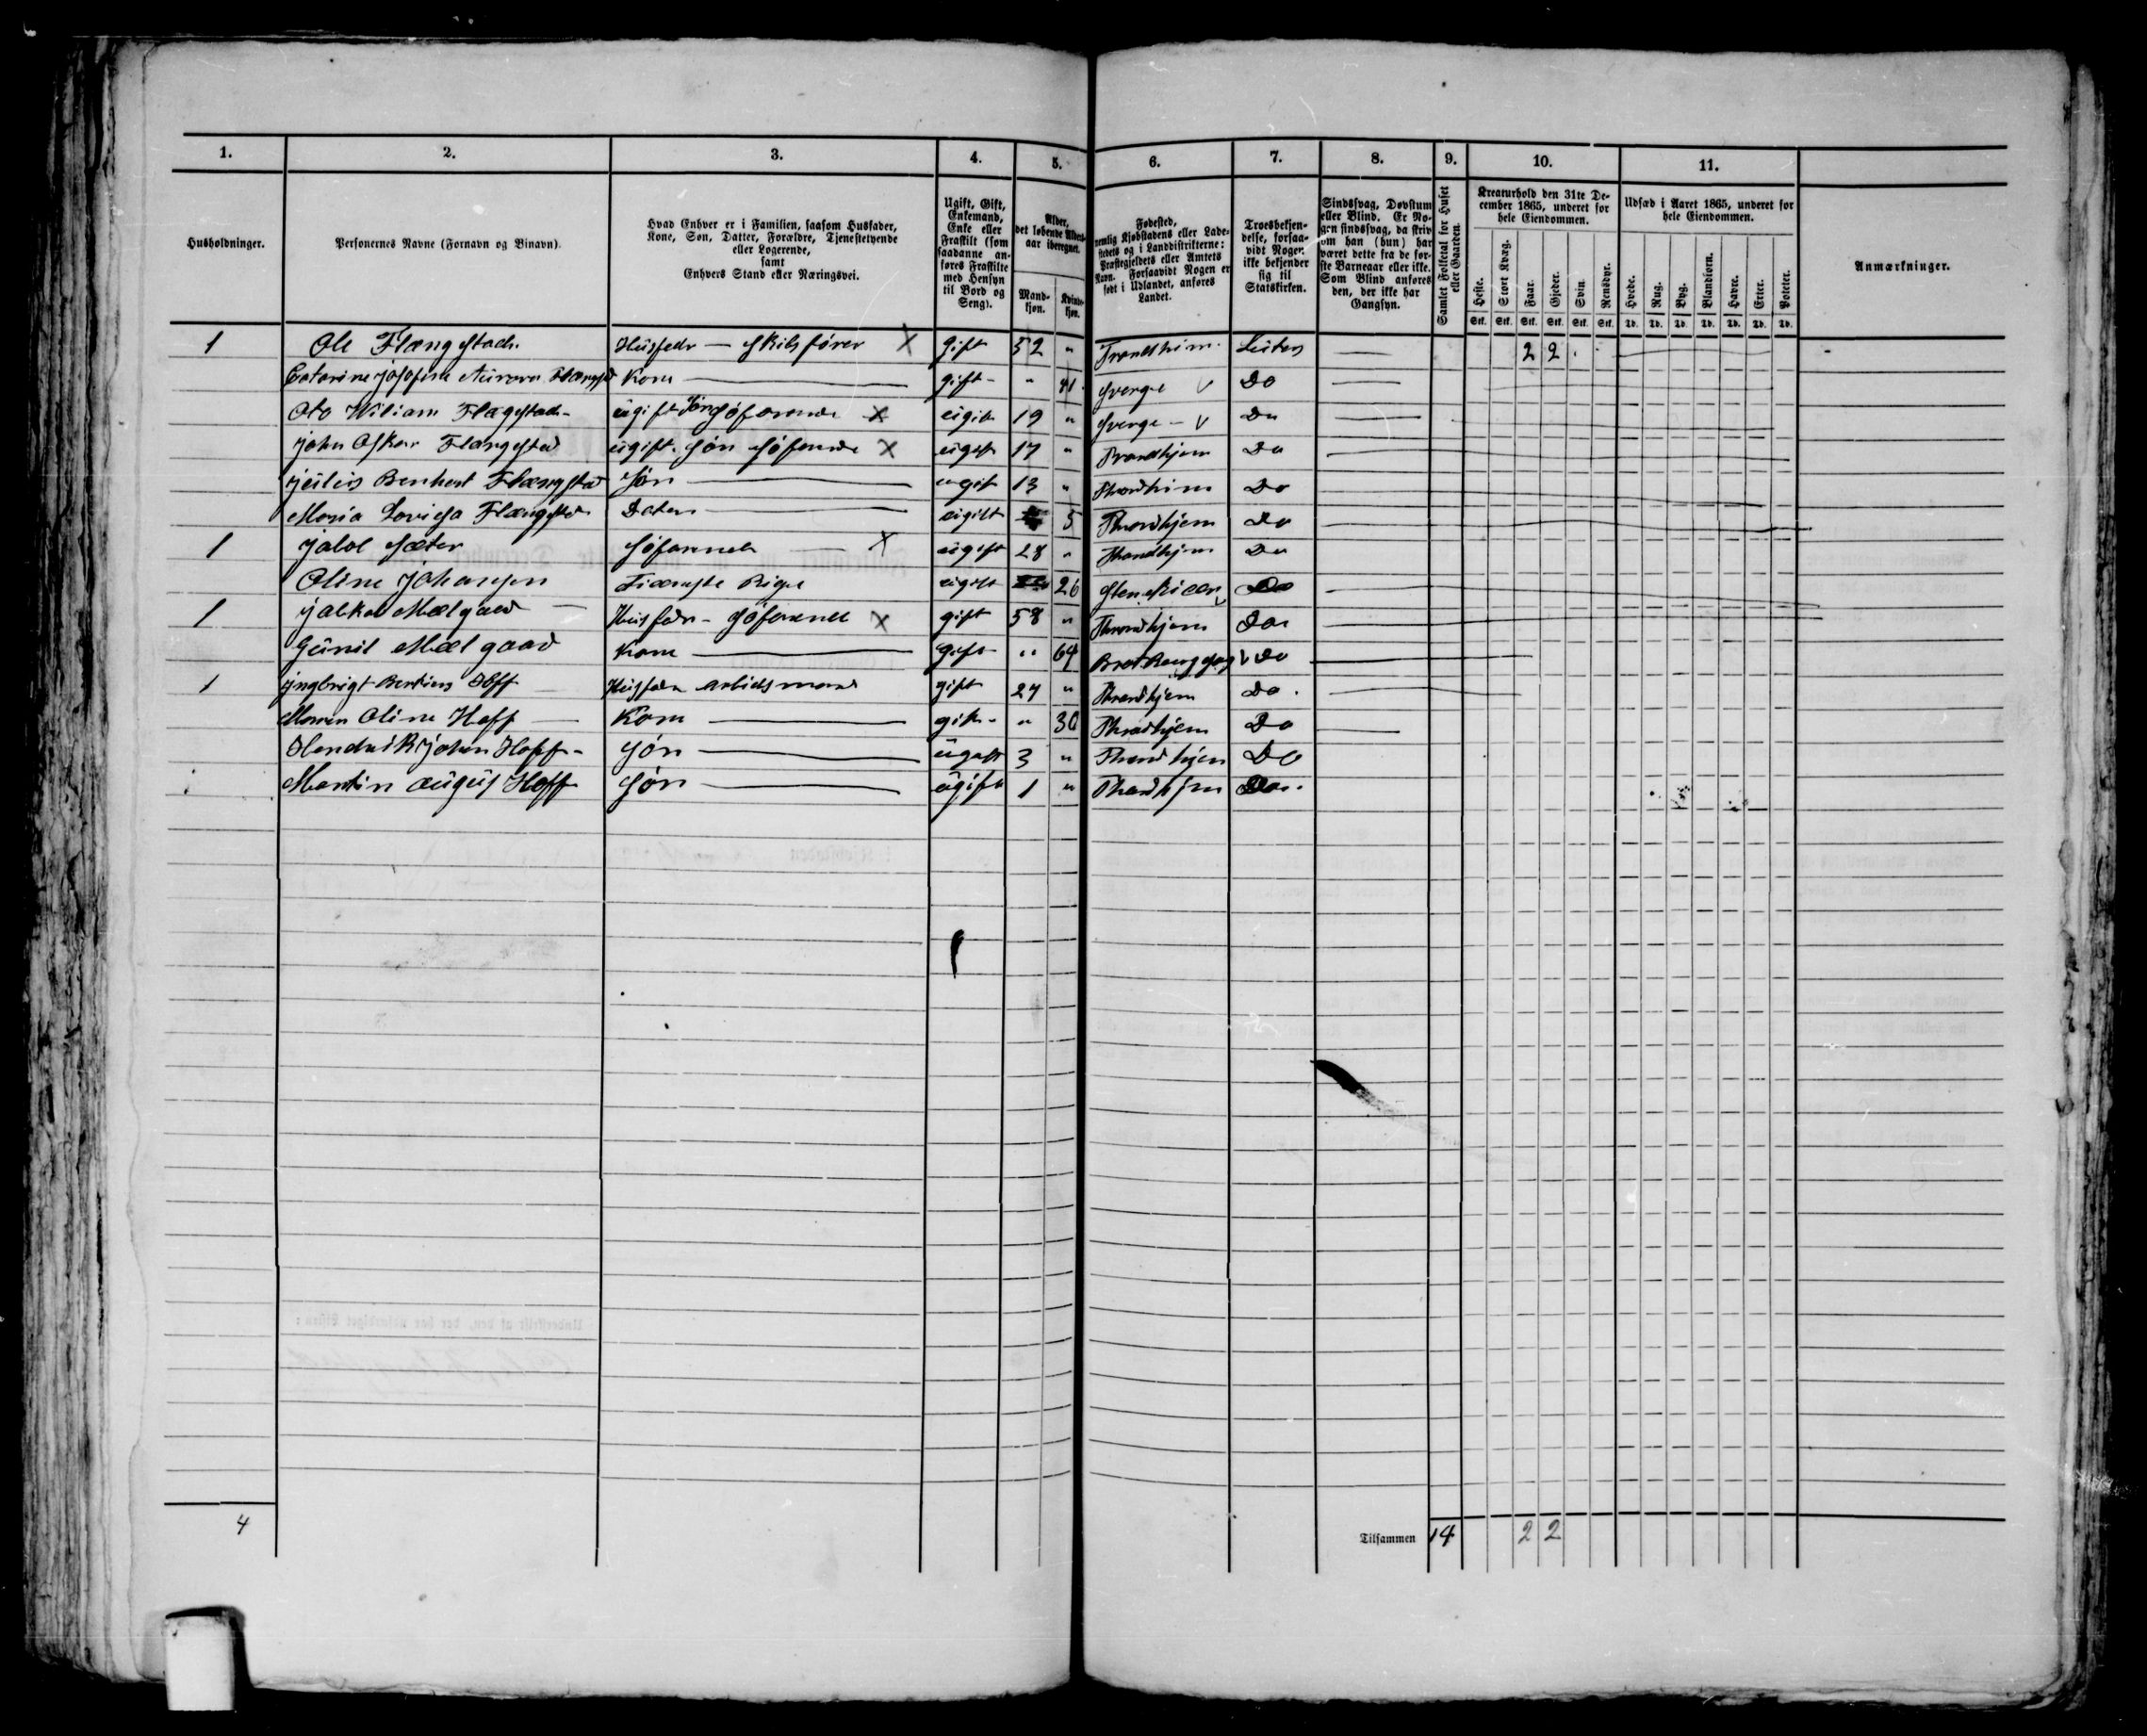 1. 2. 3. 4. 5. 6. 7. 8. 9. 10. 11.
Husholdninger.
Personernes Navne (Fornavn og Binavn).
Hvad Enhver er i Familien, saasom Husfader,
Kone, Søn, Datter, Forældre, Tjenestetyende
eller Logerende,
samt
Enhvers Stand eller Næringsvei.
Ugift, Gift,
Enkemand,
Enke eller
Fraskilt (som
saadanne an-
føres Fraskilte
med Hensyn
til Bord og
Seng).
Alder,
det løbende Alders-
aar iberegnet.
Mand-
kjøn.
Kvinde-
kjøn.
Fødested,
nemlig Kjøbstadens eller Lade-
stedets og i Landdistrikterne:
Præstegjeldets eller Amtets
Navn. Forsaavidt Nogen er
født i Udlandet, anføres
Landet.
Troesbekjen-
delse, forsaa-
vidt Nogen
ikke bekjender
sig til
Statskirken.
Sindssvag, Døvstum
eller Blind. Er No-
gen sindssvag, da skriv
om han (hun) har
været dette fra de før-
ste Barneaar eller ikke.
Som Blind anføres
den, der ikke har
Gangsyn.
Samlet Folketal for Huset
eller Gaarden.
Kreaturhold den 31te De-
cember 1865, underet for
hele Eiendommen.
Heste. Stort Kvæg. Faar. Gjeder. Svin. Rensdyr.
Stk. Stk. Stk. Stk. Stk. Stk.
Udsæd i Aaret 1865, underet for
hele Eiendommen.
Hvede. Rug. Byg. Blandkorn. Havre. Erter. Poteter.
Td. Td. Td. Td. Td. Td. Td.
Anmærkninger.
1 Ole Flængstad Husfadr — Skibsfører X gift 52 " Trondhiem 2 2
Catarine Josefine Aurora Flængstad Kone gift " 41 Sverge V Do
Oto Wiliam Flægstad ugift Søn Søfarende X ugift 19 " Sverge V Do
John Oskar Flængstad ugift Søn Søfarende X ugift 17 " Trondhjem Do
Julius Flængstad Søn ugift 13 " Throndhiem Do
Maria Lovisa Flængstad Dater ugift 5 Throndhjem Do
1 Sæter Søfarende X ugift 28 " Throndhjem Do
Oline Johansen Pige ugift 26 Do
1 Mælgaad Husfadr Søfarende X gift 58 " Throndhjem Do
Gunil Mælgaad Kone gift " 64 V Do
1 Yngbrigt Hoff Husfadr arbidsmand gift 27 " Throndhjem Do
Oline Hoff Kone gift " 30 Throndhjem Do
Hendrik Johan Hoff Søn ugift 3 " Throndhjem Do
Martin August Hoff Søn ugift 1 " Throndhjem Do
4 Tilsammen 14 2 2